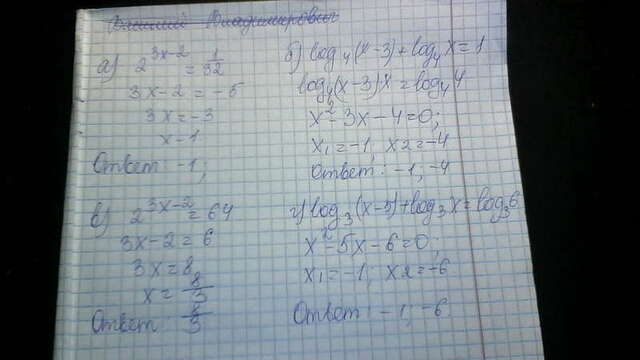 а) 2^(3x-2) = 1/32
3x-2 = -5
3x = -3
x-1
Ответ: -1;
б) log₄(x-3)+log₄x=1
log₄(x-3)x=log₄4
x²-3x-4=0;
x₁=-1, x2=-4
Ответ: -1; -4
в) 2^(3x-2) = 64
3x-2=6
3x=8
x=8/3
Ответ: 8/3
г) log₃(x-5)+log₃x=log₃6
x²-5x-6=0;
x₁=-1; x2=-6
Ответ: -1; -6